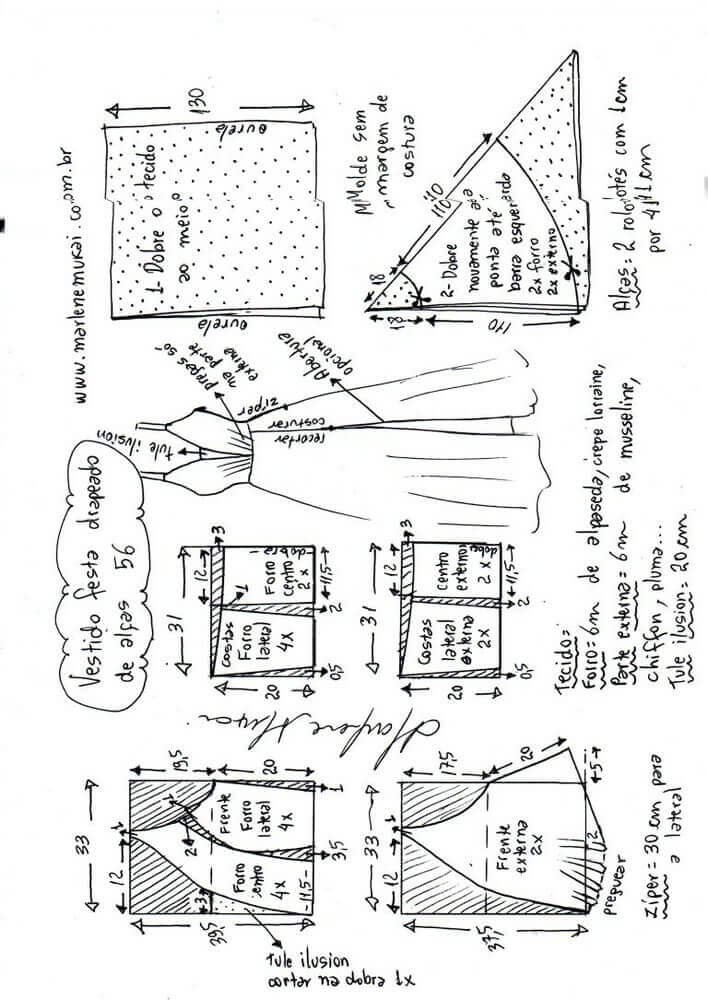 www.marlenemukai.com.br
Vestido festa drapeado
de alças 56
130
ourela
1- Dobre o tecido
ao meio
ourela
Molde sem
margem de
costura
110
110
18
2- Dobre
novamente a
ponta até
barra esquerda
2x forro
2x externa
18
110
Alças = 2 rolotês com 1cm
por 41cm
tule ilusion
pregas só
na parte
externa
zíper
Abertura
opcional
recortar
costurar
31
12
3
1
Costas
Forro
lateral
4x
Forro
centro
2x
dobra
11,5
2
0,5
20
31
12
3
Costas
lateral
externa
2x
Centro
externo
2x
dobra
11,5
2
0,5
20
Tecido=
Forro = 6m de alpaseda, crepe lorraine,
Parte externa = 6m de musseline,
chiffon, pluma...
Tule ilusion = 20cm
33
12
1
19,5
20
1
2
Frente
Forro
lateral
4x
Forro
centro
4x
3
11,5
3,5
1
39,5
Tule ilusion
cortar na dobra 1x
33
12
1
17,5
20
5
2
Frente
externa
2x
37,5
preguear
zíper = 30 cm para
a lateral